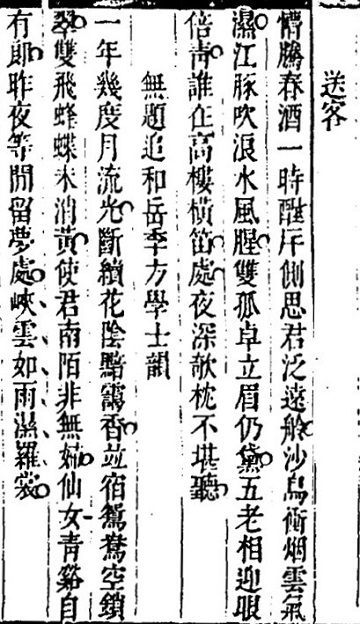 送客
懵騰春酒一時醒岸側思君泛遠舲沙鳥衝烟雲氣
濕江豚吹浪水風腥雙孤卓立眉仍黛五老相迎眼
倍青誰在高樓橫笛處夜深欹枕不堪聽
無題追和岳季方學士韻
一年幾度月流光斷續花陰黯靄香並宿鴛鴦空鎖
翠雙飛蜂蝶未消黃使君南陌非無婦仙女青谿自
有郎昨夜等閒留夢處峽雲如雨濕羅裳